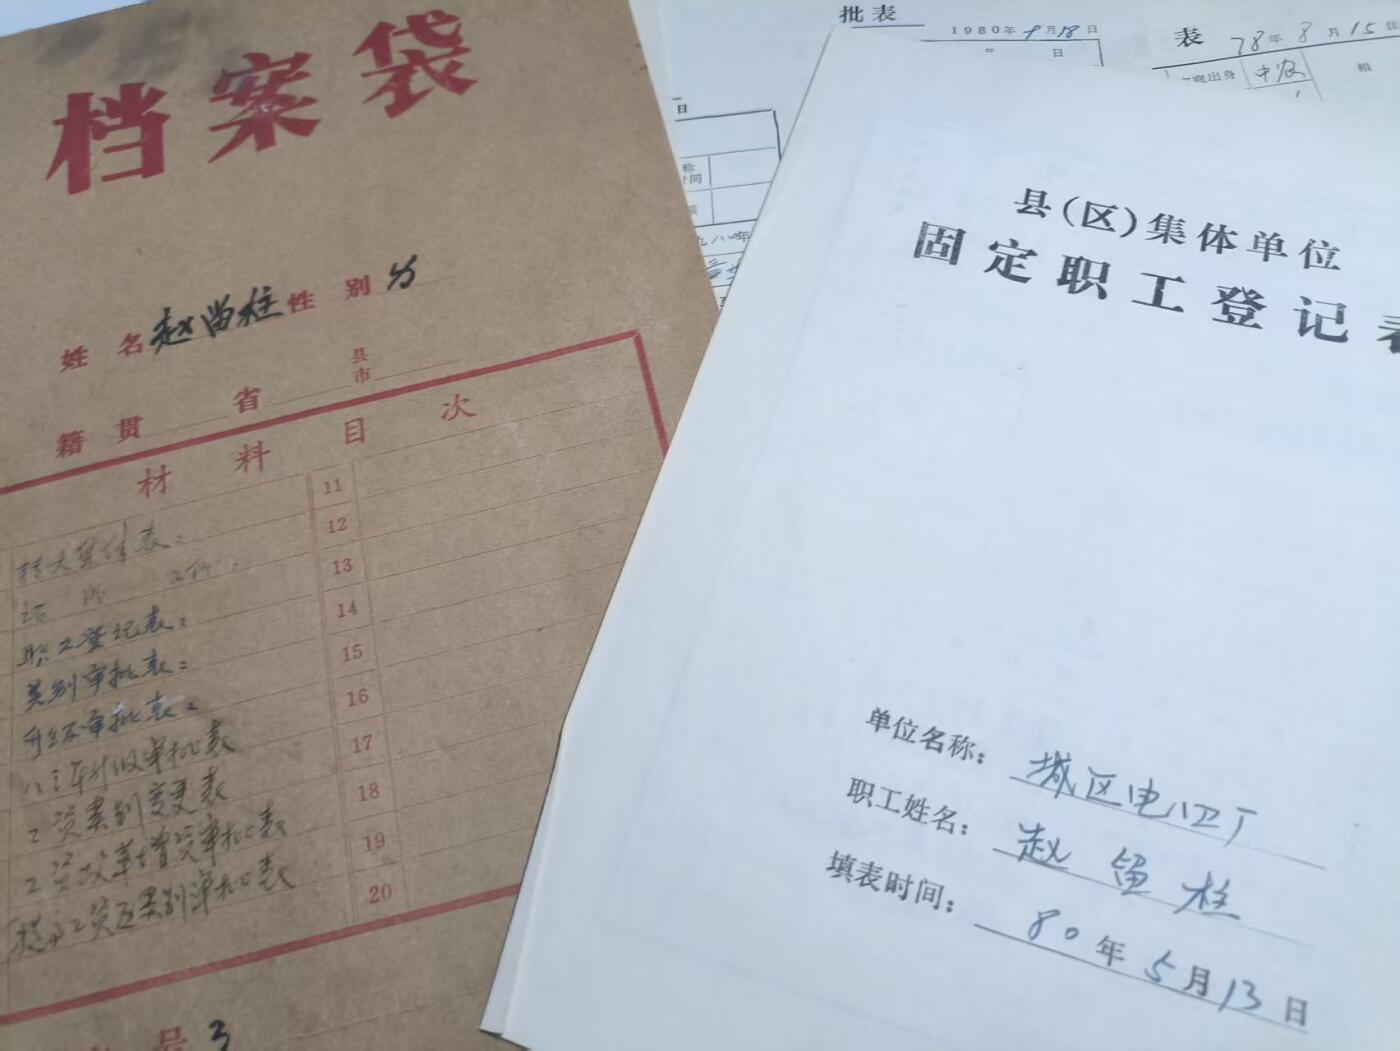 档案袋
姓名赵留柱性别
籍贯 省 县市
材料目次
11
12
13
14
15
16
17
18
19
20
职工登记表:
类别审批表:
升级审批表:
八三年升级审批表
工资类别变更表
工资改革增资审批表
工资区类别审批表
3
批表
1980年9月18日
日
表
78年8月15日
出身 中农
相
日
称
间
县(区)集体单位
固定职工登记表
单位名称: 城区电
职工姓名: 赵留柱
填表时间: 80年5月13日